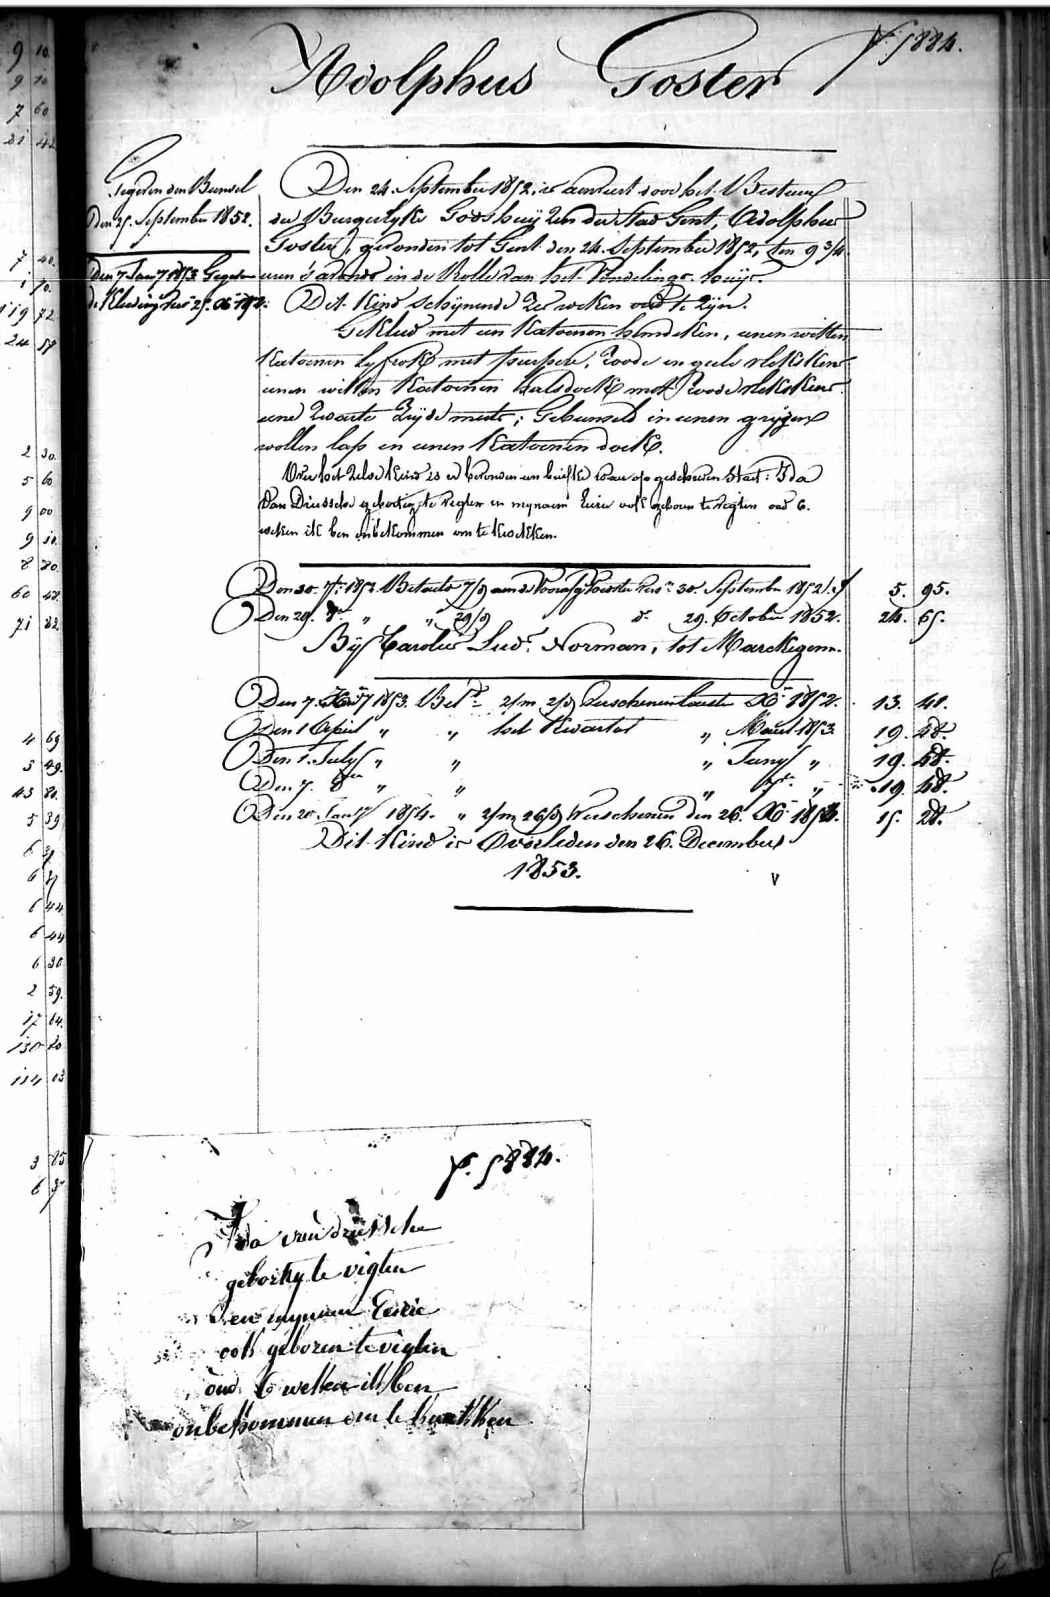 f. 5884.
Adolphus Goster
Gegeven den Bunsel
Den 25. September 1852.
Den 7 Jan.y 1853 Gegeven
de Kleeding
Den 24. September 1852, is aenveert door het Bestuur
der Burgerlyke Godshuijzen der Stad Gent, Adolphus
Goster, gevonden tot Gent den 24. September 1852, ten 9 3/4
uren 's avonds in de Rolle van het Vondelings-huijs.
Dit Kind schijnende zes weken oud te zijn.
Gekleed met een Katoenen hemdeken, eenen witten
Katoenen lijfrok met purpere, roode en geele vlekskens
eenen witten Katoenen halsdoek met roode vlekskens
eene zwarte zijde muts; Gebunseld in eenen grijzen
wollen lap en eenen Katoenen doek.
Over het zelve Kind is er bevonden een briefke waer op geschreven staet: Ida
Van Driessche gebortig te vigten en mynaem Eeirie ook geboren te vigten oud 6.
weken ik ben onbekommen om te kweken.
Den 30. 7.r 1852 Betaeld 7/9 aen de Voorzorg 30. September 1852. 5. 95.
Den 29. 8.r " " 29/9 d.o 29. October 1852. 24. 65.
Bij Carolus Lud.s Norman, tot Marckegem.
Den 7. Jan.y 1853. Bet.d 2/m 2/9 verschenen laeste X.r 1852. 13. 41.
Den 1 April " " het Kwartael " Maert 1853. 19. 48.
Den 1. July " " " Juny " 19. 48.
Den 7. 8.ber " " " 7.r " 19. 48.
Den 20. Jan.y 1854. " 2/m 26/9 Verschenen den 26. X.r 1853. 15. 28.
Dit Kind is Overleden den 26. December
1853.
V
f. 5884.
Ida van driessche
gebortig te vigten
en mynaem Eeirie
ook geboren te vigten
oud 6 weken ik ben
onbekommen om te kweken